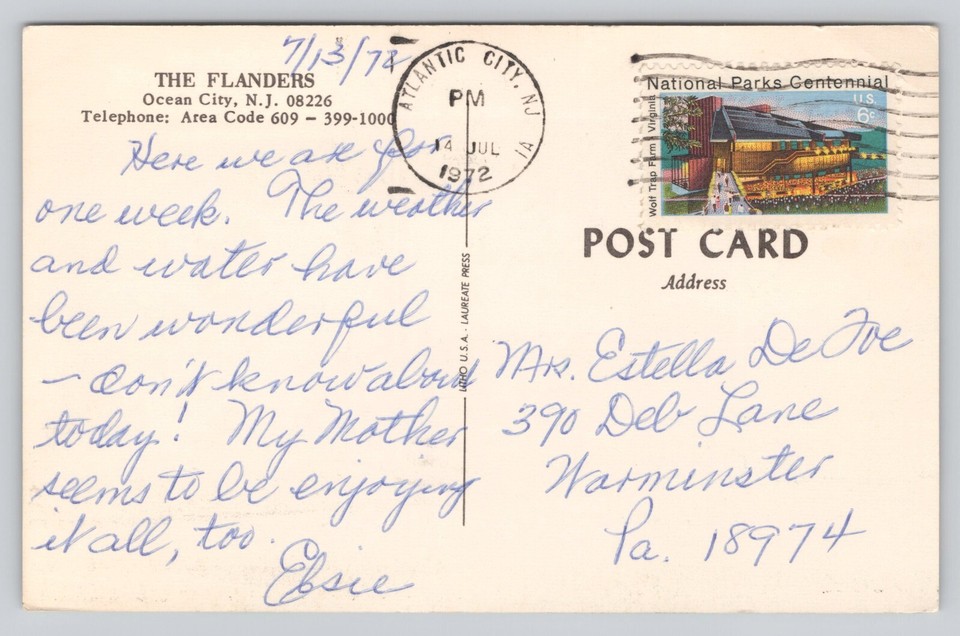 7/13/72
THE FLANDERS
Ocean City, N.J. 08226
Telephone: Area Code 609 – 399-1000
Here we are for
one week. The weather
and water have
been wonderful
– don't know about
today! My Mother
seems to be enjoying
it all, too.
Elsie
LITHO U.S.A. - LAUREATE PRESS
ATLANTIC CITY, NJ
PM
14 JUL
1972
1A
National Parks Centennial
U.S.
6c
Wolf Trap Farm Virginia
POST CARD
Address
Mrs. Estella De Foe
390 Deb Lane
Warminster
Pa. 18974